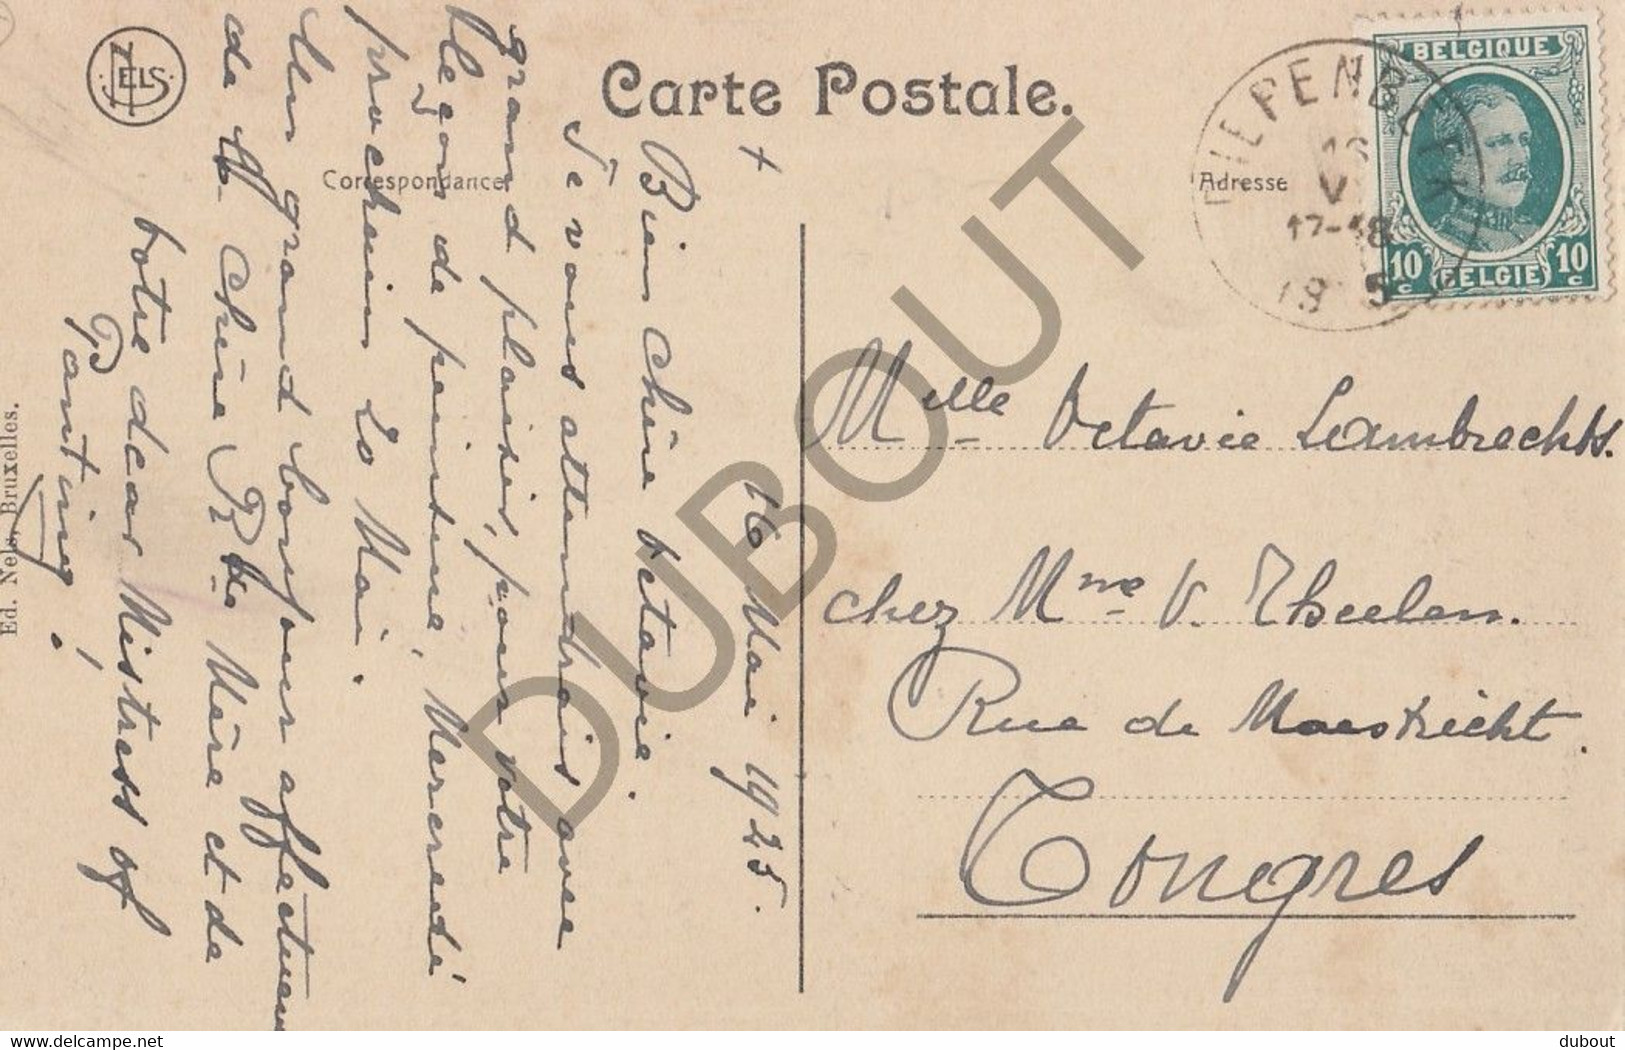 NELS
Carte Postale.
Correspondance
Adresse
DIEPENBEEK
16
V
17-18
19 5
BELGIQUE
10 c
BELGIE
10 c
+
16 Mai 1925.
Bien chère Octavie.
Je vous attendrais avec
grand plaisir, pour votre
leçon de peinture, Mercredi
prochain 20 Mai.
Un grand bonjour affectueux
de M. chère Rde Mère et de
votre dear Mistress of
Panting!
Melle Octavie Lambrechts.
chez Mme V. Theelen.
Rue de Maestricht.
Tongres
Ed. Nels, Bruxelles.
DUBOUT
delcampe.net
dubout